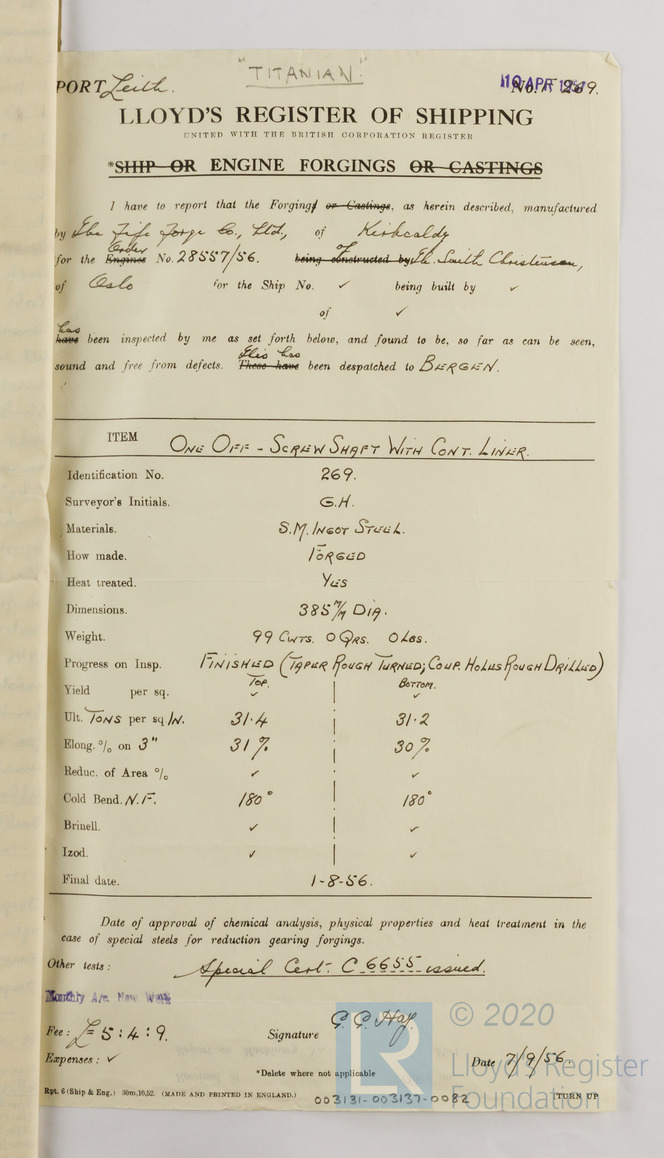 "TITANIAN"
PORT Leith. No. 269.
LLOYD'S REGISTER OF SHIPPING
UNITED WITH THE BRITISH CORPORATION REGISTER
*SHIP OR ENGINE FORGINGS OR CASTINGS
I have to report that the Forgings or Castings, as herein described, manufactured
by The Fife Forge Co., Ltd., of Kirkcaldy
Order
for the Engines No. 28557/56. being constructed by Th. Smith Christensen,
of Oslo for the Ship No. ✓ being built by ✓
of ✓
has
have been inspected by me as set forth below, and found to be, so far as can be seen,
This has
sound and free from defects. These have been despatched to BERGEN.
ITEM ONE OFF - SCREW SHAFT WITH CONT. LINER.
Identification No. 269.
Surveyor's Initials. G.H.
Materials. S.M. INGOT STEEL.
How made. FORGED
Heat treated. YES
Dimensions. 385 M/M DIA.
Weight. 99 CWTS. 0 QRS. 0 LBS.
Progress on Insp. FINISHED (TAPER ROUGH TURNED; COUP. HOLES ROUGH DRILLED)
TOP. BOTTOM.
Yield per sq. ✓ ✓
Ult. TONS per sq. IN. 31.4 31.2
Elong. % on 3" 31% 30%
Reduc. of Area % ✓ ✓
Cold Bend. N.F. 180° 180°
Brinell. ✓ ✓
Izod. ✓ ✓
Final date. 1-8-56.
Date of approval of chemical analysis, physical properties and heat treatment in the
case of special steels for reduction gearing forgings.
Other tests: Special Cert. C 6655 issued.
Monthly A/c New Work
Fee: £5:4:9. Signature G. G. Hay.
Expenses: ✓ Date 7/9/56.
*Delete where not applicable
Rpt. 6 (Ship & Eng.) 30m,10,52. (MADE AND PRINTED IN ENGLAND.) [TURN UP
003131-003137-0082
LR
© 2020
Lloyd's Register
Foundation